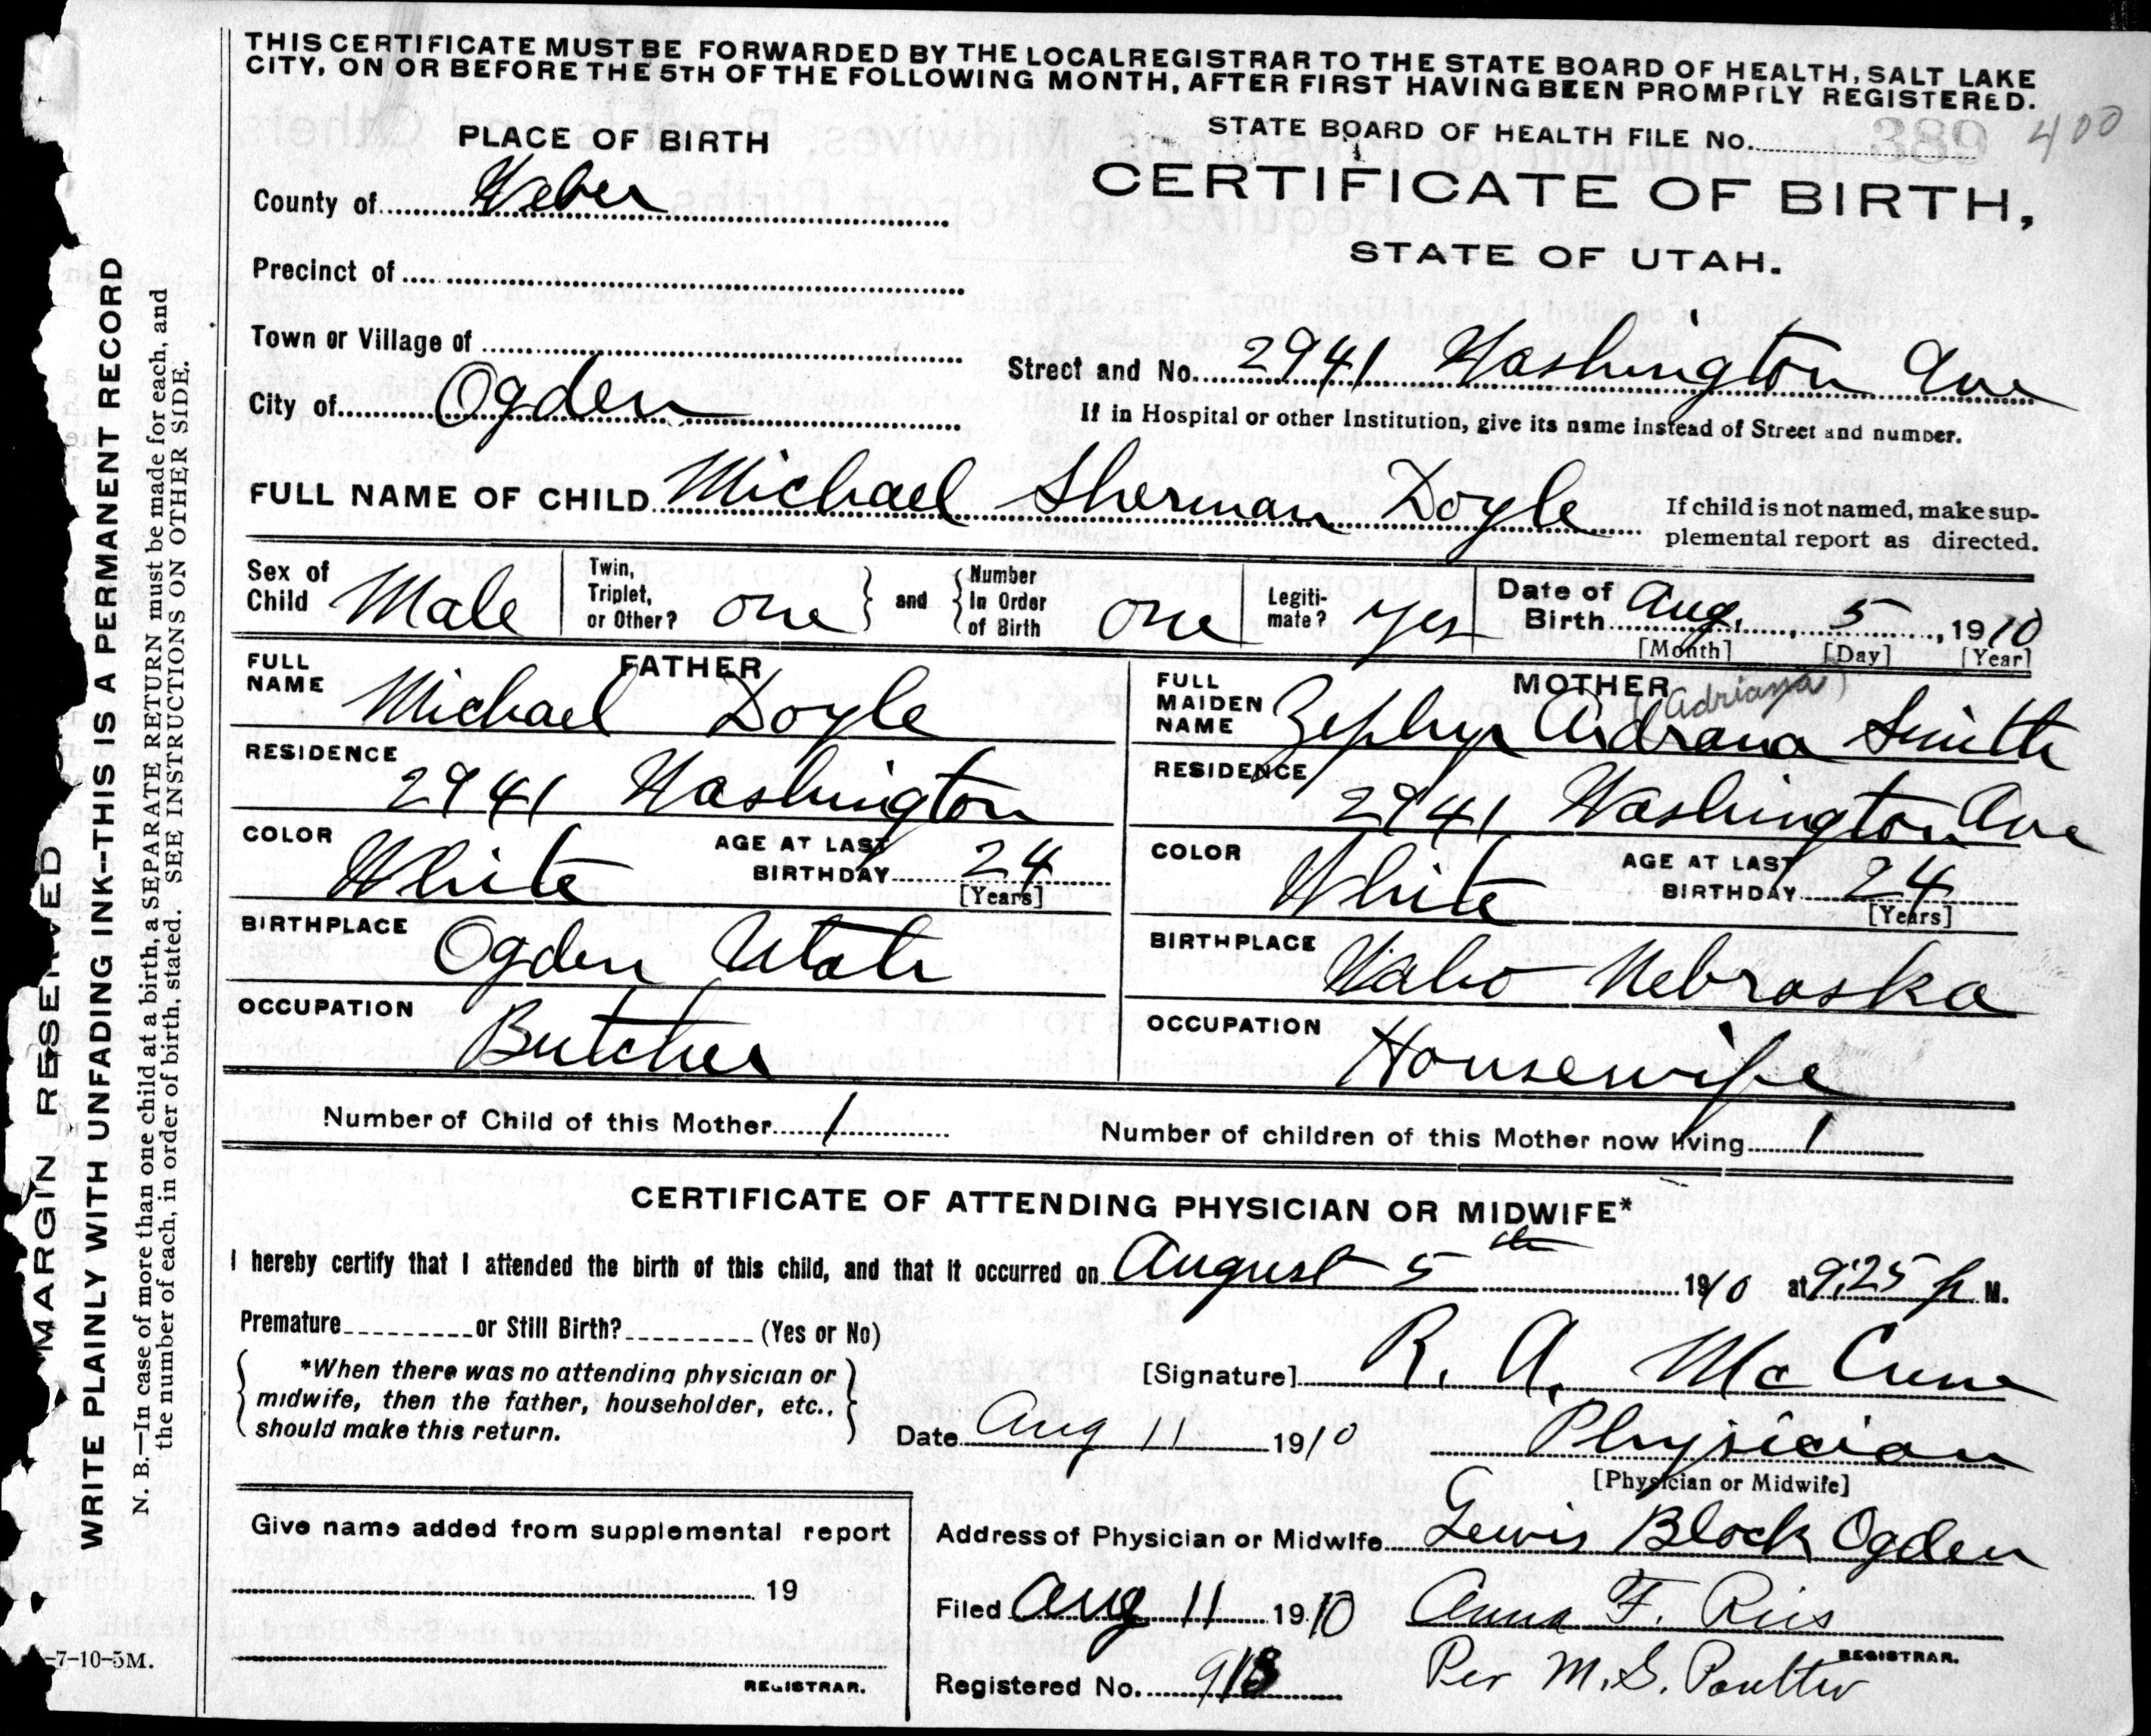 THIS CERTIFICATE MUST BE FORWARDED BY THE LOCAL REGISTRAR TO THE STATE BOARD OF HEALTH, SALT LAKE
CITY, ON OR BEFORE THE 5TH OF THE FOLLOWING MONTH, AFTER FIRST HAVING BEEN PROMPTLY REGISTERED.
STATE BOARD OF HEALTH FILE No. 389 400
PLACE OF BIRTH
CERTIFICATE OF BIRTH,
STATE OF UTAH.
County of Weber
Precinct of
Town or Village of
Street and No. 2941 Washington Ave
City of Ogden
If in Hospital or other Institution, give its name instead of Street and number.
FULL NAME OF CHILD Michael Sherman Doyle
If child is not named, make sup-
plemental report as directed.
Sex of Child Male
Twin, Triplet, or Other? one } and { Number In Order of Birth one
Legiti-mate? Yes
Date of Birth Aug. 5, 1910
[Month] [Day] [Year]
FATHER
FULL NAME Michael Doyle
RESIDENCE 2941 Washington
COLOR White AGE AT LAST BIRTHDAY 24
[Years]
BIRTHPLACE Ogden Utah
OCCUPATION Butcher
MOTHER
(Adriana)
FULL MAIDEN NAME Zephyr Aidrana Smith
RESIDENCE 2941 Washington Ave
COLOR White AGE AT LAST BIRTHDAY 24
[Years]
BIRTHPLACE Waho Nebraska
OCCUPATION Housewife
Number of Child of this Mother 1
Number of children of this Mother now living 1
CERTIFICATE OF ATTENDING PHYSICIAN OR MIDWIFE*
I hereby certify that I attended the birth of this child, and that it occurred on August 5th 1910 at 9:25 p M.
Premature or Still Birth? (Yes or No)
*When there was no attending physician or
midwife, then the father, householder, etc.,
should make this return.
[Signature] R. A. McCune
Date Aug 11 1910 Physician
[Physician or Midwife]
Give name added from supplemental report
19
REGISTRAR.
Address of Physician or Midwife Lewis Block Ogden
Filed Aug 11 1910 Anna F. Ries
REGISTRAR.
Registered No. 913 Per M. S. Poulter
-7-10-5M.
MARGIN RESERVED
WRITE PLAINLY WITH UNFADING INK--THIS IS A PERMANENT RECORD
N. B.—In case of more than one child at a birth, a SEPARATE RETURN must be made for each, and
the number of each, in order of birth, stated. SEE INSTRUCTIONS ON OTHER SIDE.